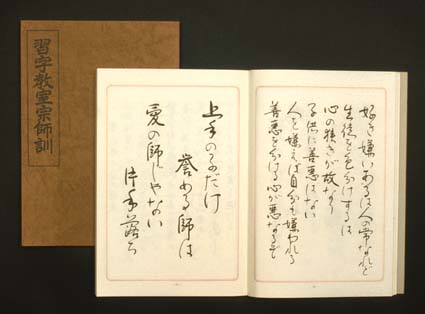 習字教室宗師訓
好き嫌いあるは人の常なれど
生徒を色分けするは
心の狭きが故なり
子供に善悪はない
人を嫌えば自分も嫌われる
善悪を分ける心が悪なるぞ
上手の子だけ
誉める師は
愛の師じゃない
片手落ち